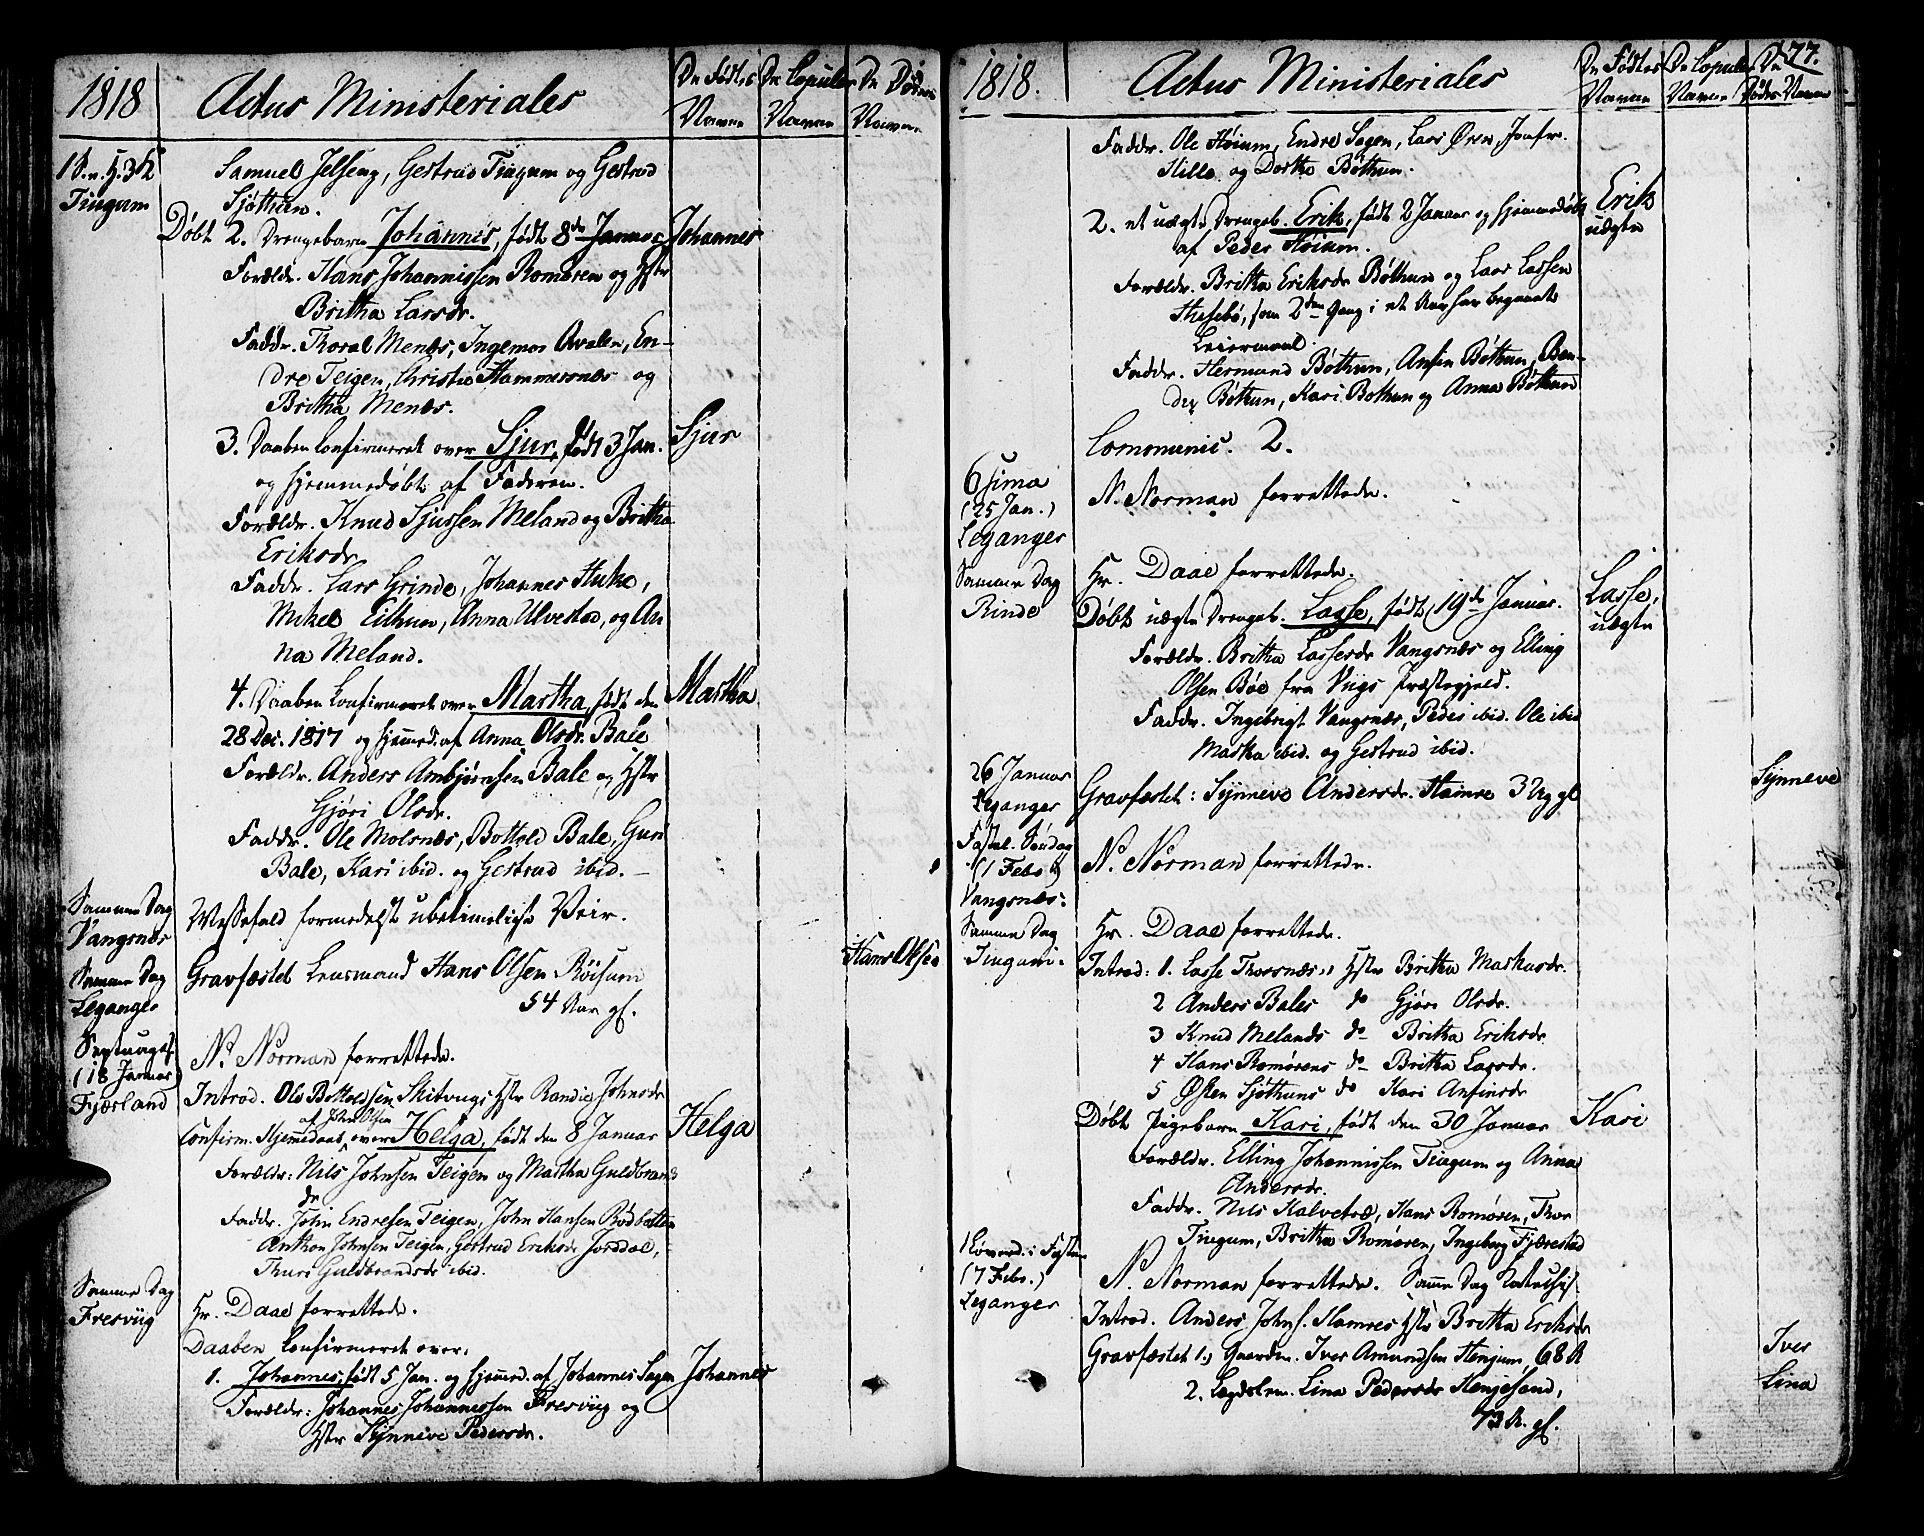 1818
Actus Ministeriales
De Fødtes Navne
De Copuler Navne
De Dødes Navne
1 S. e. H. 3 K
Tiugum
Samuel Jelseng, Gertrud Tiugum og Gertrud
Sjøthun.
Døbt 2. Drengebarn Johannes, født 8de Januar
Johannes
Forældr. Hans Johannissen Romøren og Hstr
Britha Larsdr.
Faddr. Thoral Menæs, Ingemor Qvalen, En-
dre Teigen, Christie Hammersnæs og
Britha Menæs.
3. Daaben Confirmeret over Sjur, født 3 Jan.
Sjur
og hjemmedøbt af Faderen.
Forældr. Knud Sjursen Meland og Britha
Eriksdr.
Faddr. Lars Grinde, Johannes Huke,
Mikel Eithun, Anna Ulvestad, og An
na Meland.
4. Daaben Confirmeret over Martha, født den
Martha
28 Dec. 1817 og hjemmed. af Anna Olsdr. Bale
Forældr. Anders Ambjørnsen Bale og Hstr
Gjøri Olsdr.
Faddr. Ole Molsnæs, Bottold Bale, Guri
Bale, Kari ibid. og Gertrud ibid. –
Samme Dag
Vangsnæs
Messefald formedelst ubetimeligt Veir.
Samme Dag
Leganger
Gravfæstet Lensmand Hans Olsen Røisum
54 Aar gl.
Hans Olsen
Septuages.
(18 Januar)
Fjærland
N. Norman forrettede.
Introd. Ole Bottoldsen Skitvugs Hstr Randie Johnsdr
af John Olsen
Confirm. Hjemedaab, over Helga, født den 8 Januar
Helga
Forældr: Nils Johnsen Teigen og Martha Guldbrands
dr
Faddr. John Endresen Teigen, John Hansen Bødbatten
Anthon Johnsen Teigen, Gertrud Eriksdr Jorddal,
Thuri Guldbrandsdr ibid.
Samme Dag
Fresviig
Hr. Daae forrettede.
Daaben Confirmeret over,
1. Johannes, født 5 Jan. og hjemmed. af Johannes Sagen
Johannes
Forældr: Johannes Johannessen Fresviig og
Hstr Synneve Pedersdr.
1818.
Actus Ministeriales
De Fødtes Navne
De Copuler Navne
De Dødes Navne
77.
Faddr. Ole Høium, Endre Sagen, Lars Øren, Jomfr.
Hille og Dorthe Bøthun.
2. et uægte Drengeb. Erik, født 2 Januar og hjemmedøbt
Erik
uægte
af Peder Høium.
Forældr. Britha Eriksdr Bøthun og Lars Larsen
Thesebø, som 2den Gang i et Aar har begaaet
Leiermaal.
Faddr. Hermund Bøthun, Ansen Bøthun, Ben-
dix Bøthun, Kari Bøthun og Anna Bøthun
Communic. 2.
6sima
(25 Jan.)
Leganger
N. Norman forrettede.
Samme Dag
Rinde
Hr. Daae forrettede.
Døbt uægte Drengeb. Lasse, født 19de Januar.
Lasse,
uægte
Forældr. Britha Lassesdr Vangsnæs og Elling
Olsen Bøe fra Viigs Præstegjeld.
Faddr. Ingebrigt Vangsnæs, Peder ibid. Ole ibid
Martha ibid. og Gertrud ibid.
26 Januar
Leganger
Gravfæstet: Synneve Andersdr. Hamre 3 Ug gl
Synneve
Fastel. Søndag
(1 Febr)
Vangsnæs:
N. Norman forrettede.
Samme Dag
Tiugum.
Hr. Daae forrettede.
Introd: 1. Lasse Thorsnæs Hstr Britha Markusdr.
2 Anders Bales do Gjøri Olsdr.
3 Knud Melands do Britha Eriksdr.
4 Hans Romørens do Britha Larsdr.
5 Østen Sjøthuns do Kari Anfinsdr
Døbt Pigebarn Kari, født den 30 Januar
Kari
Forældr. Elling Johannissen Tiugum og Anna
Andersdr.
Faddr. Nils Kalvetræ, Hans Romøren, Thor
Tiugum, Britha Romøren, Ingeborg Fjærestad
1 Løverd. i Fasten
(7 Febr.)
Leganger
N. Norman forrettede. Samme Dag Catechis.
Introd. Anders Johns. Hamres Hstr Britta Eriksdr
Gravfæstet 1.) Gaardm. Iver Amundsen Henjum, 68 A
Iver
2. Lægdslem. Lina Pedersdr Henjesand,
Lina
73 A. gl.